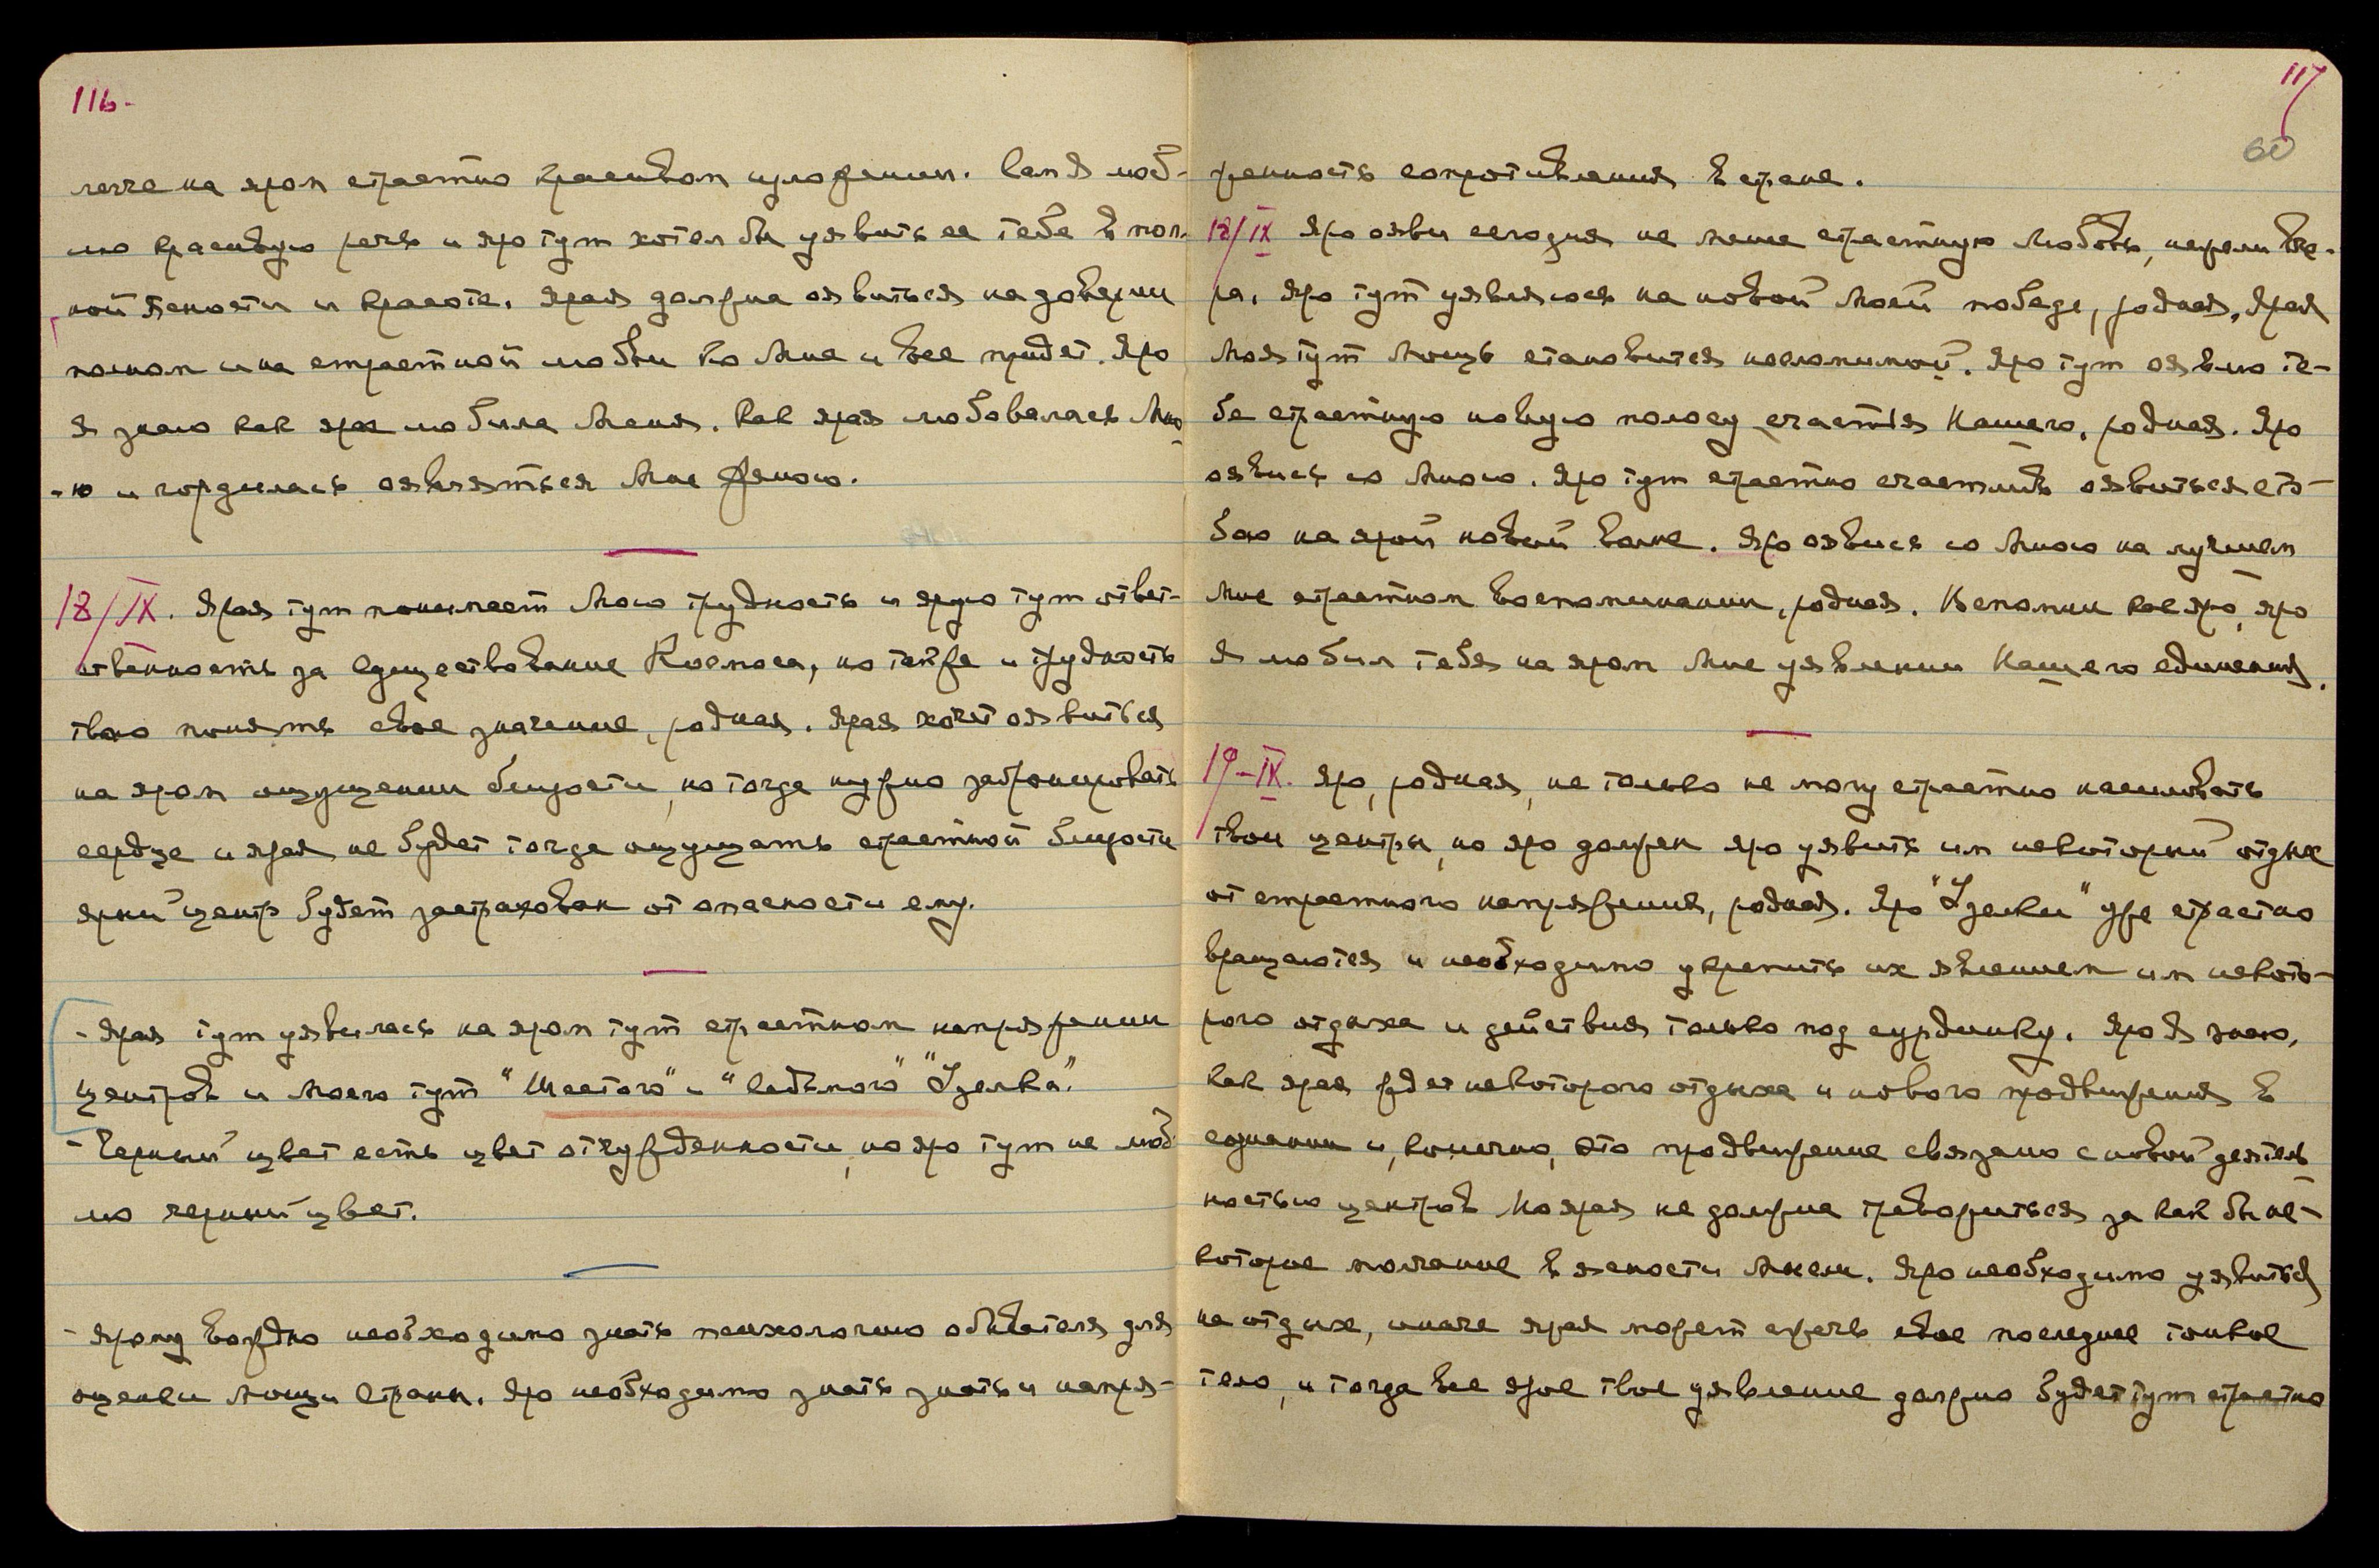 116-
легче на яром страстно красивом изложении. Сам Я люб-
лю красивую речь и яро тут хотел бы уявить ее тебе в пол-
ной ясности и красоте. Ярая должна оявиться на доверии
полном и на страстной любви ко Мне и все придет. Яро
Я знаю как ярая любила Меня. Как ярая любовалась Мно
-ю и гордилась оявляться Мне Женою.
18/IX. Ярая тут понимает Мою трудность и ярую тут ответ-
ственность за существование Космоса, но также и трудность
твою понять свое значение, родная. Ярая хочет оявиться
на яром ощущении близости, но тогда нужно забронировать
сердце и ярая не будет тогда ощущать страстной близости
ярый центр будет застрахован от опасности ему.
- Ярая тут уявилась на яром тут страстном напряжении
центров и Моего тут "Шестого" и "Седьмого" "Узелка".
- Черный цвет есть цвет отчужденности, но яро тут не люб
лю черный цвет.
- Ярому Вождю необходимо знать психологию обывателя для
оценки мощи страны. Яро необходимо знать знать и напря-
117
60
женность сопротивления в стране.
18/IX Яро ояви сегодня не менее страстную любовь, нежели вче-
ра. Яро тут уявляюся на новой Моей победе, родная. Ярая
Моя тут Мощь становится несломимой. Яро тут оявлю те-
бе страстную новую полосу счастья Нашего, родная. Яро
оявись со Мною. Яро тут страстно счастлив оявиться с то-
бою на ярой новой волне. Яро оявись со Мною на лучшем
Мне страстном воспоминании, родная. Вспомни как яро, яро
Я любил тебя на яром Мне уявлении Нашего единения.
19-IX. Яро, родная, не только не могу страстно насиловать
твои центры, но яро должен яро уявить им некоторый отдых
от страстного напряжения, родная. Яро "Узелки" уже страстно
вращаются и необходимо укрепить их явлением им некото-
рого отдыха и действия только под сурдинку. Яро Я знаю,
как ярая ждет некоторого отдыха и нового продвижения в
сознании и, конечно, это продвижение связано с новой деятель
ностью центров Но ярая не должна тревожиться за как бы не-
которое молчание в ясности Мысли. Яро необходимо уявиться
на отдыхе, иначе ярая может сжечь свое последнее тонкое
тело, и тогда все ярое твое уявление должно будет тут страстно